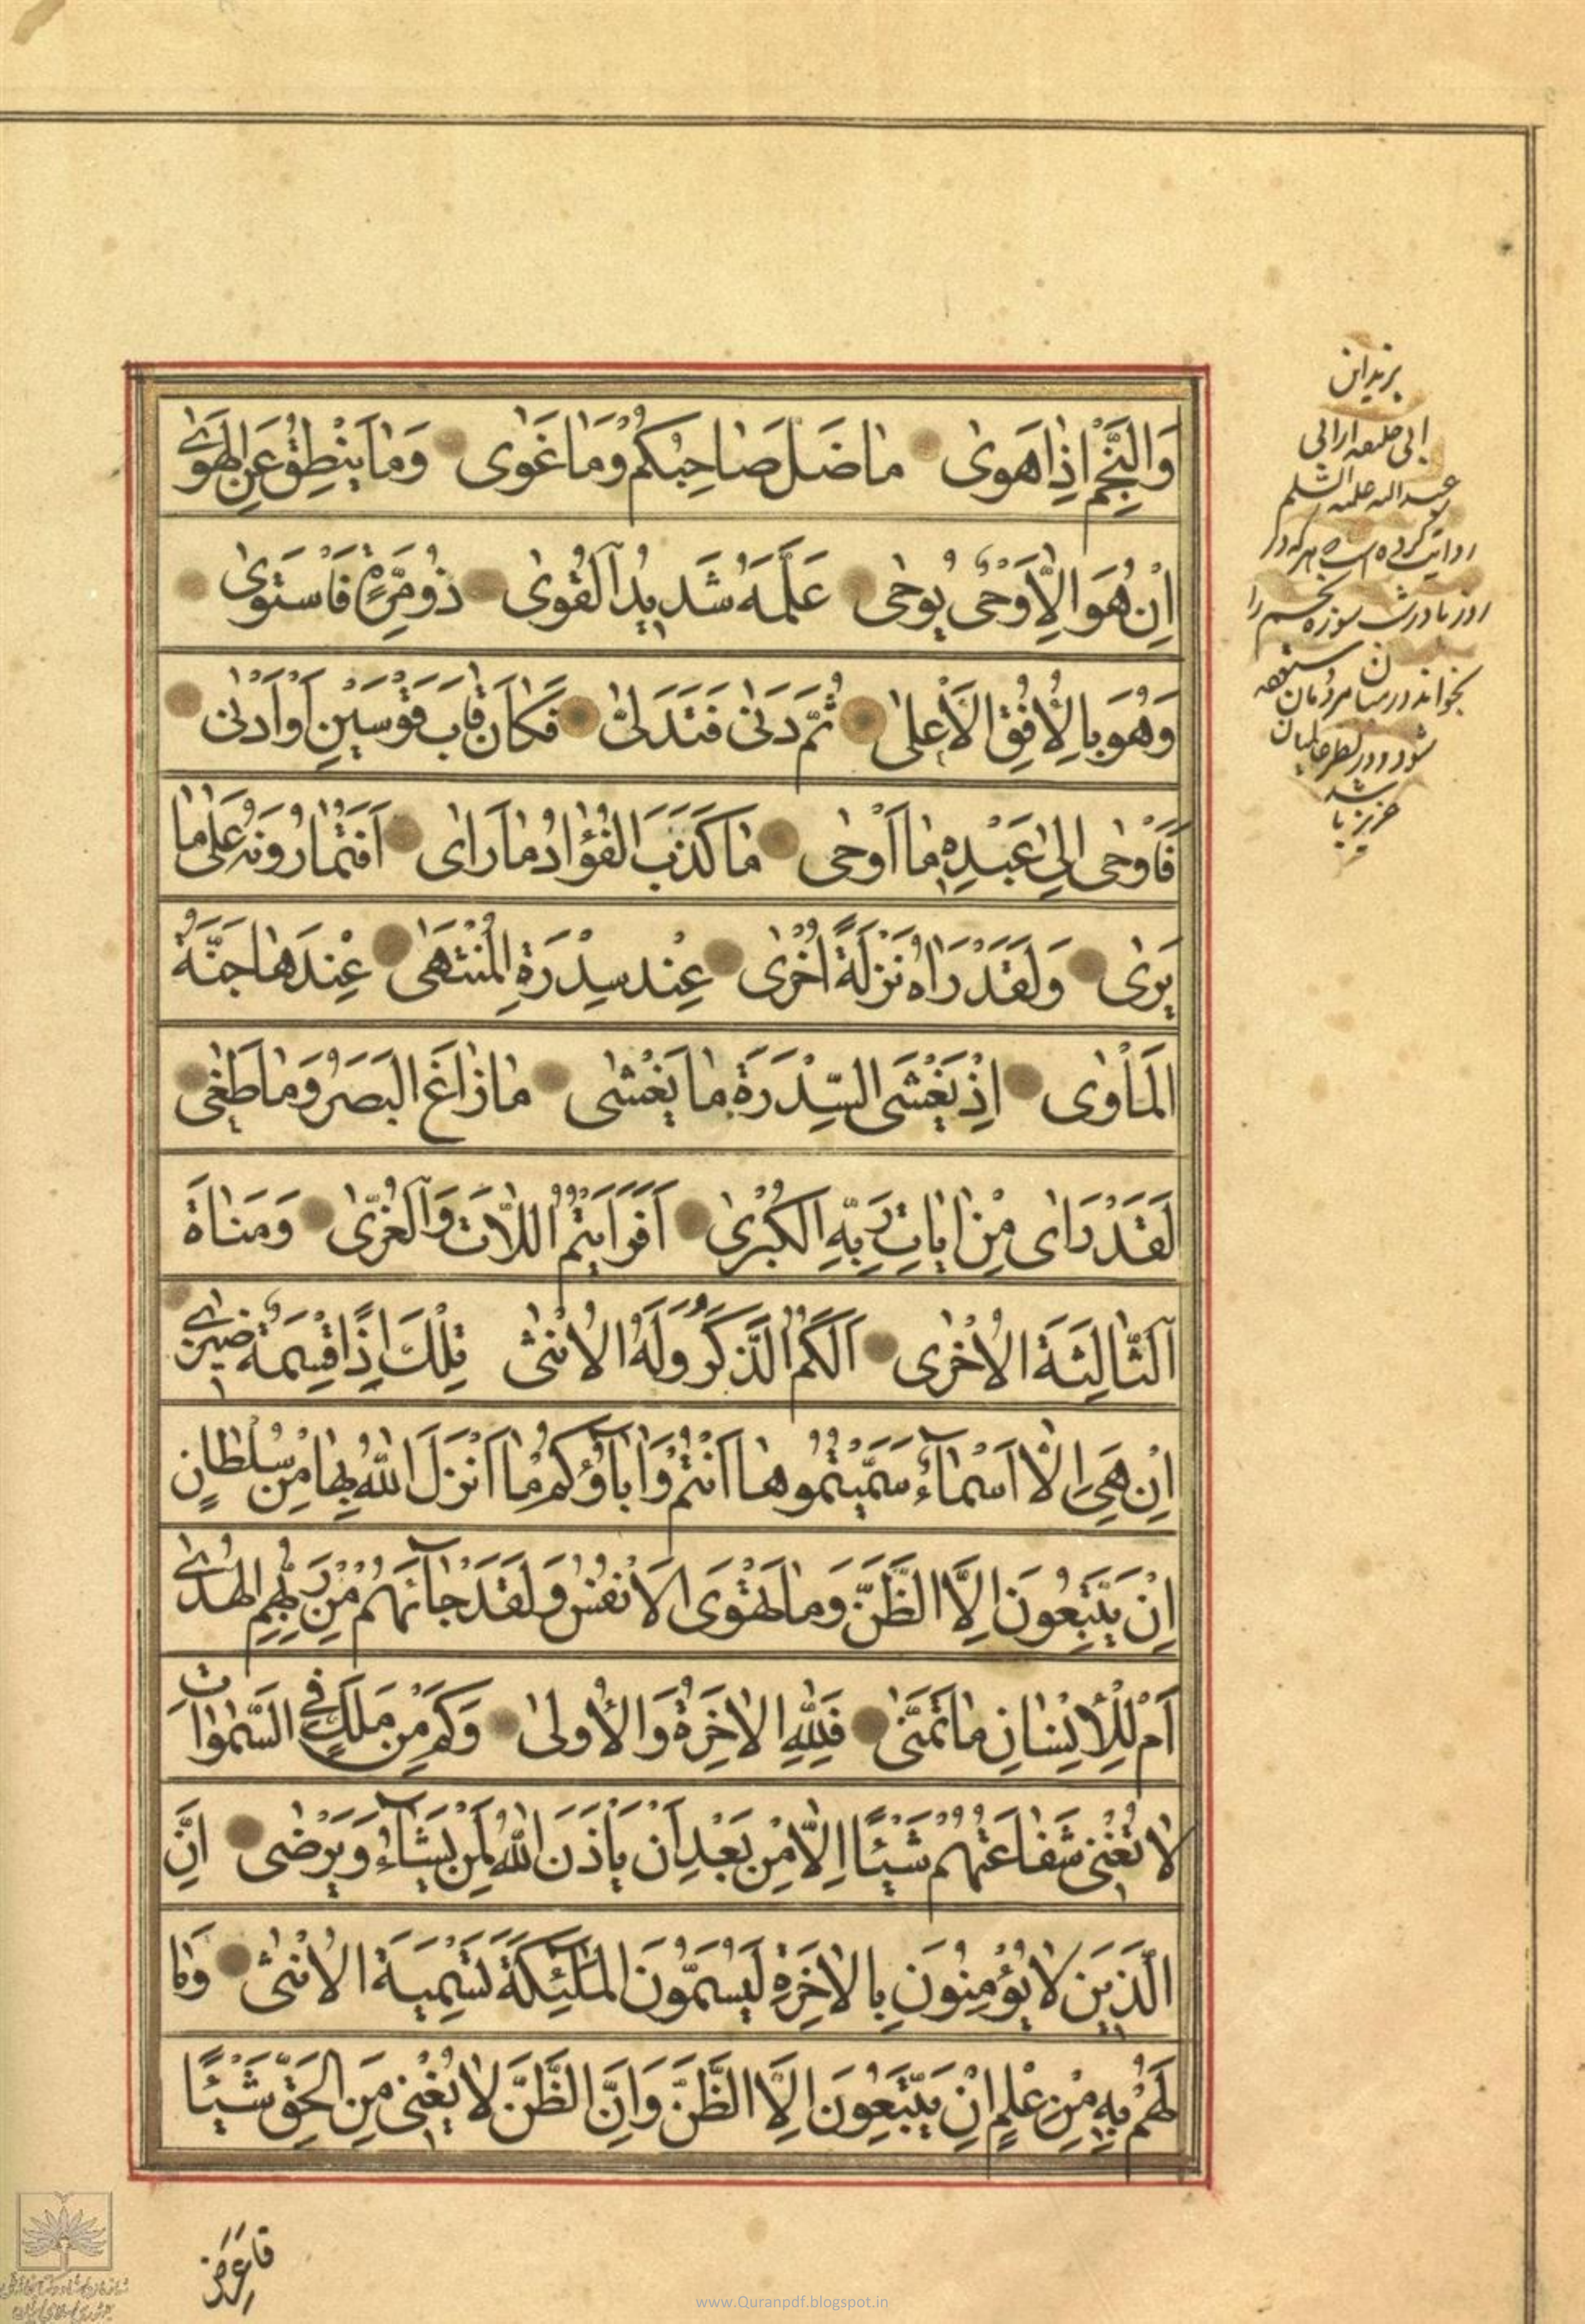 وَالنَّجْمِ اِذٰا هَوىٰ مٰا ضَلَّ صٰاحِبُكُمْ وَمٰا غَوىٰ وَمٰا يَنْطِقُ عَنِ الْهَوىٰ
اِنْ هُوَ اِلّٰا وَحْيٌ يُوحىٰ عَلَّمَهُ شَديدُ الْقُوىٰ ذُو مِرَّةٍ فَاسْتَوىٰ
وَهُوَ بِالْاُفُقِ الْاَعْلىٰ ثُمَّ دَنىٰ فَتَدَلّىٰ فَكٰانَ قٰابَ قَوْسَيْنِ اَوْ اَدْنىٰ
فَاَوْحىٰ اِلىٰ عَبْدِهِ مٰا اَوْحىٰ مٰا كَذَبَ الْفُؤٰادُ مٰا رَاىٰ اَفَتُمٰارُونَهُ عَلىٰ مٰا
يَرىٰ وَلَقَدْ رَاٰهُ نَزْلَةً اُخْرىٰ عِنْدَ سِدْرَةِ الْمُنْتَهىٰ عِنْدَهٰا جَنَّةُ
الْمَأْوىٰ اِذْ يَغْشَى السِّدْرَةَ مٰا يَغْشىٰ مٰا زٰاغَ الْبَصَرُ وَمٰا طَغىٰ
لَقَدْ رَاىٰ مِنْ اٰيٰاتِ رَبِّهِ الْكُبْرىٰ اَفَرَاَيْتُمُ اللّٰاتَ وَالْعُزّىٰ وَمَنٰاةَ
الثّٰالِثَةَ الْاُخْرىٰ اَلَكُمُ الذَّكَرُ وَلَهُ الْاُنْثىٰ تِلْكَ اِذًا قِسْمَةٌ ضيزىٰ
اِنْ هِيَ اِلّٰا اَسْمٰاءٌ سَمَّيْتُمُوهٰا اَنْتُمْ وَاٰبٰاؤُكُمْ مٰا اَنْزَلَ اللّٰهُ بِهٰا مِنْ سُلْطٰانٍ
اِنْ يَتَّبِعُونَ اِلَّا الظَّنَّ وَمٰا تَهْوَى الْاَنْفُسُ وَلَقَدْ جٰاءَهُمْ مِنْ رَبِّهِمُ الْهُدىٰ
اَمْ لِلْاِنْسٰانِ مٰا تَمَنّىٰ فَلِلّٰهِ الْاٰخِرَةُ وَالْاُولىٰ وَكَمْ مِنْ مَلَكٍ فِي السَّمٰوٰاتِ
لٰا تُغْني شَفٰاعَتُهُمْ شَيْئًا اِلّٰا مِنْ بَعْدِ اَنْ يَأْذَنَ اللّٰهُ لِمَنْ يَشٰاءُ وَيَرْضىٰ اِنَّ
الَّذينَ لٰا يُؤْمِنُونَ بِالْاٰخِرَةِ لَيُسَمُّونَ الْمَلٰئِكَةَ تَسْمِيَةَ الْاُنْثىٰ وَمٰا
لَهُمْ بِهِ مِنْ عِلْمٍ اِنْ يَتَّبِعُونَ اِلَّا الظَّنَّ وَاِنَّ الظَّنَّ لٰا يُغْني مِنَ الْحَقِّ شَيْئًا
عبدالله علیه السلم
روایت کرده است هر که در
بخواند در میان مردمان
فَاَعْرِضْ
www.Quranpdf.blogspot.in